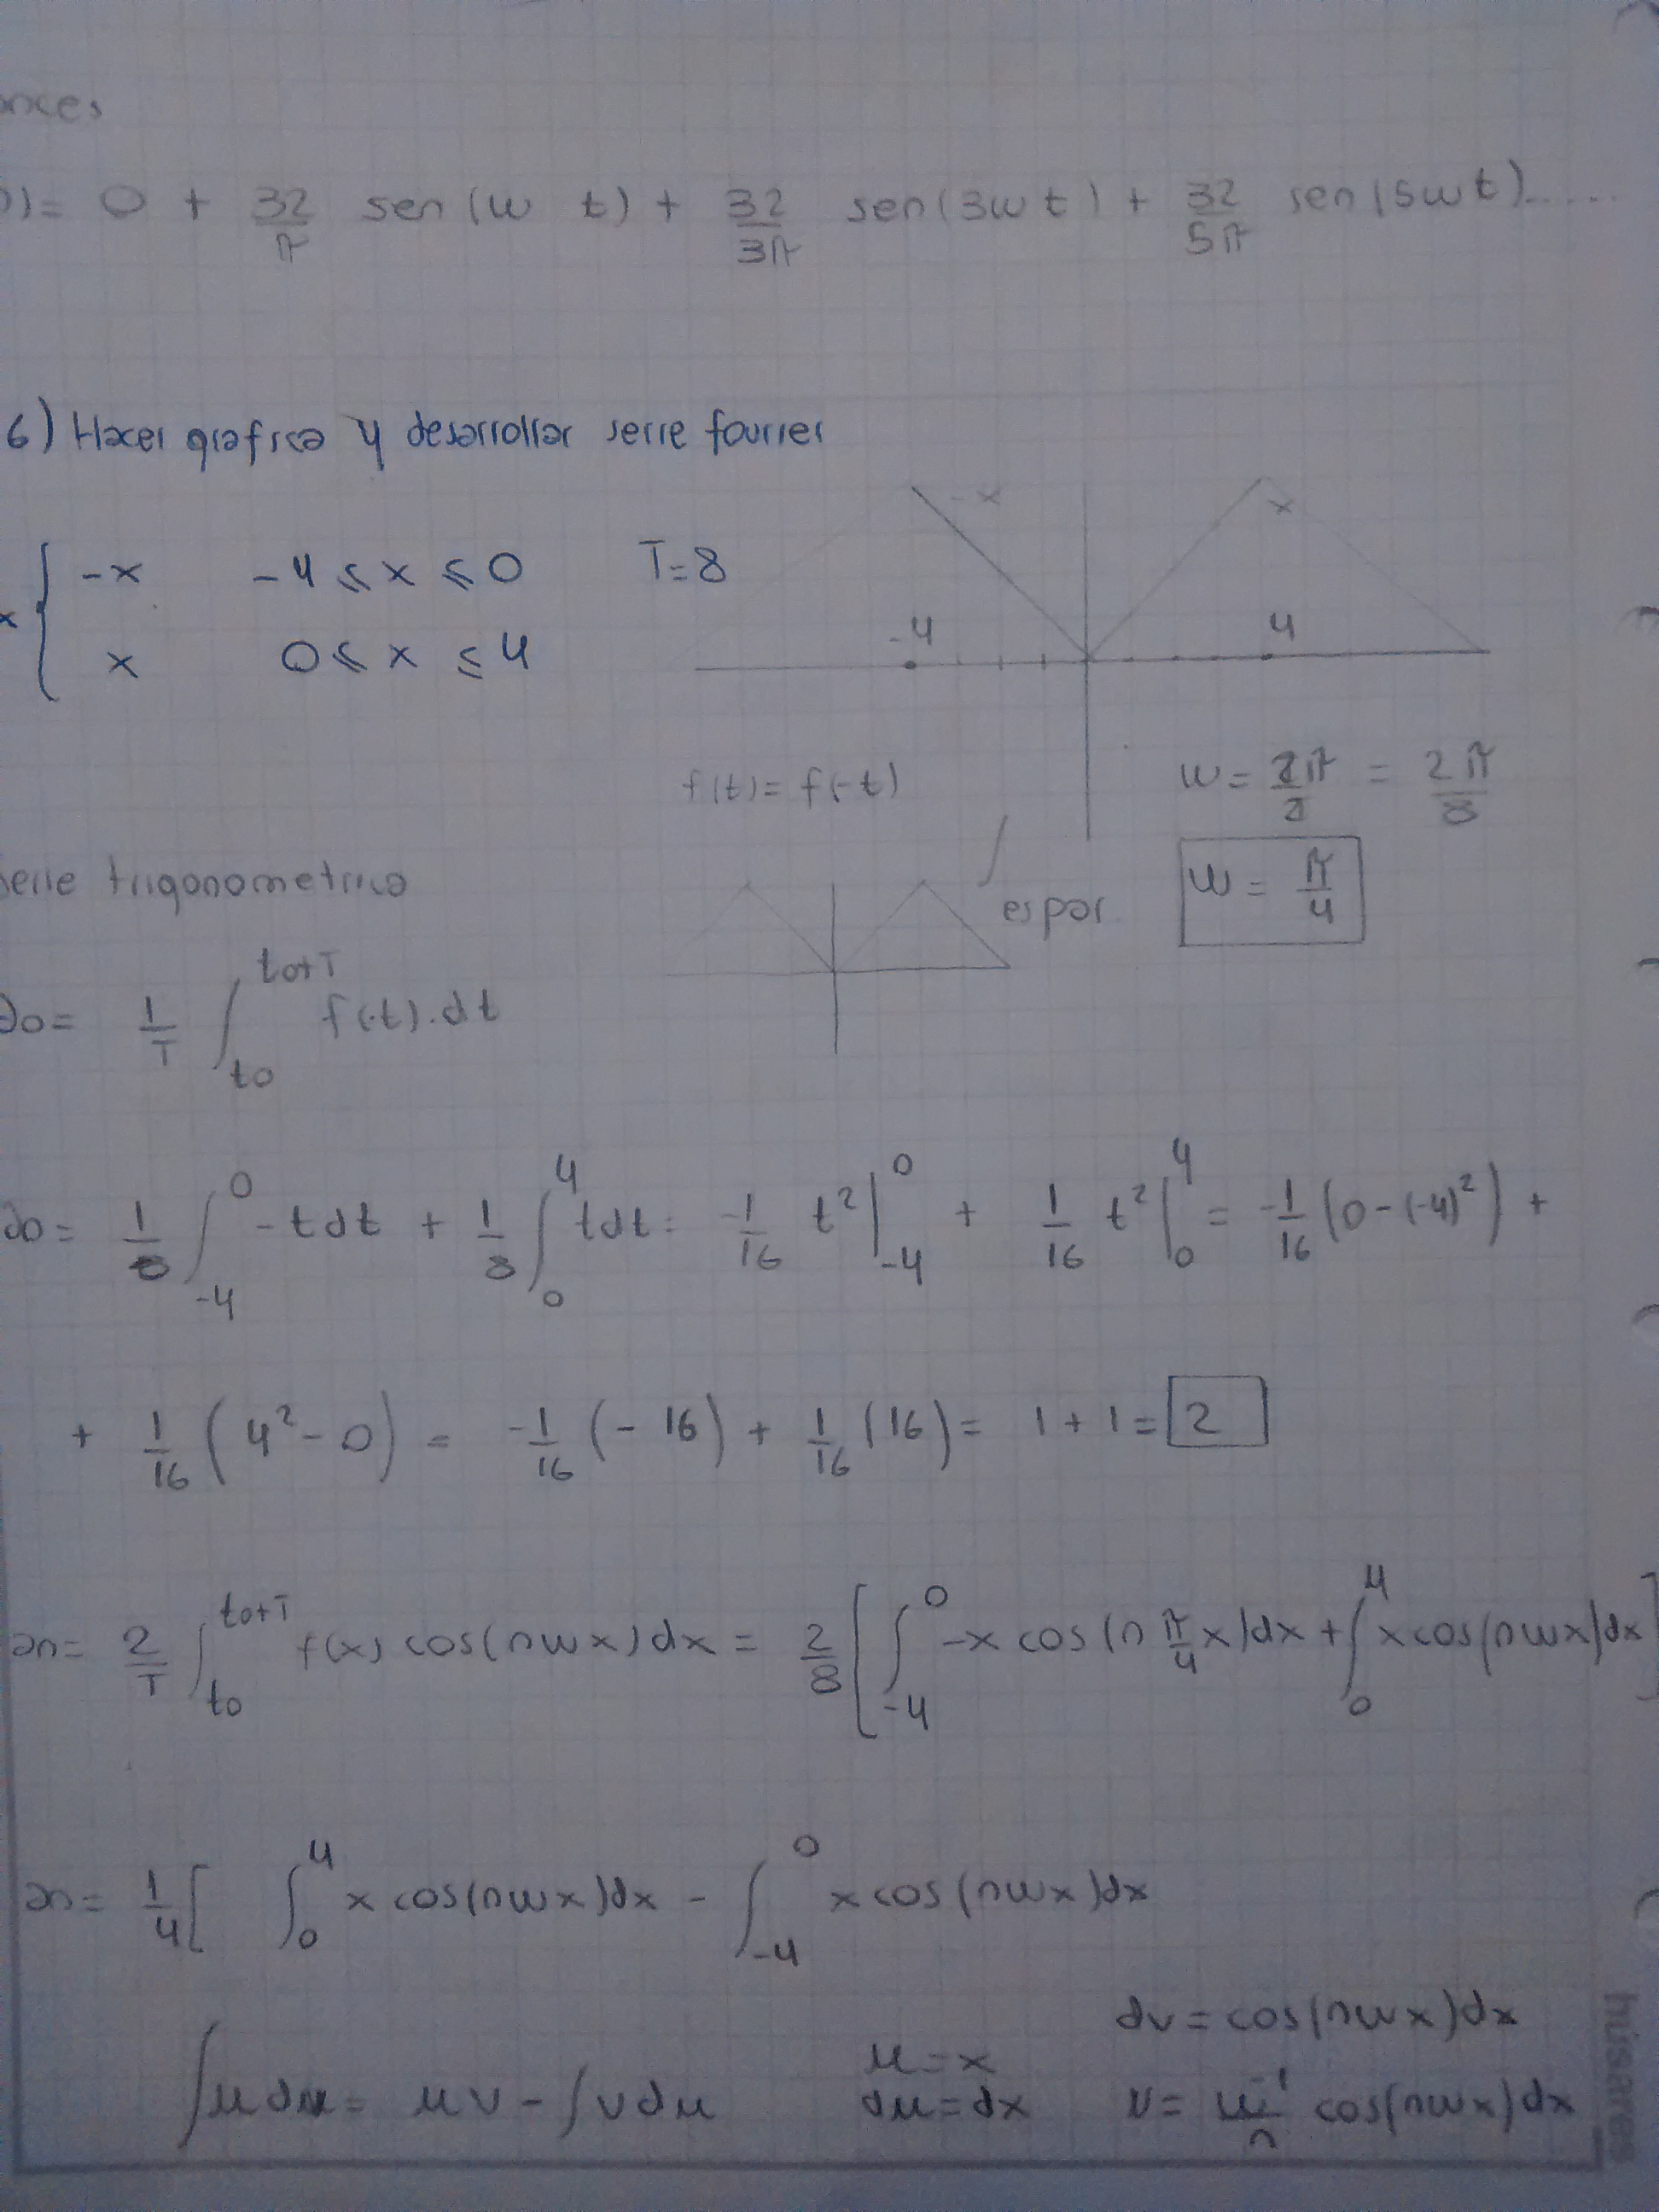 onces
)= 0 + 32/π sen(w t) + 32/3π sen(3wt) + 32/5π sen(5wt).....
6) Hacer grafica y desarrollar serie fourier
-x -4 ≤ x ≤ 0 T=8
x 0 ≤ x ≤ 4
-x x
-4 4
f(t)= f(-t) w= 2π/8 = 2π/8
serie trigonometrica
es par w= π/4
ao= 1/T ∫ to to+T f(t).dt
ao= 1/8 ∫ -4 0 -tdt + 1/8 ∫ 0 4 tdt= -1/16 t²| -4 0 + 1/16 t²| 0 4 = -1/16 (0-(-4)²) +
+ 1/16 (4²-0) = -1/16 (-16) + 1/16 (16)= 1+1= 2
an= 2/T ∫ to to+T f(x) cos(nwx)dx = 2/8 [ ∫ -4 0 -x cos(n π/4 x)dx + ∫ 0 4 x cos(nwx)dx ]
an= 1/4 [ ∫ 0 4 x cos(nwx)dx - ∫ -4 0 x cos(nwx)dx
dv= cos(nwx)dx
u=x
∫udu= uv-∫vdu du=dx v= w⁻¹/n cos(nwx)dx
húsares